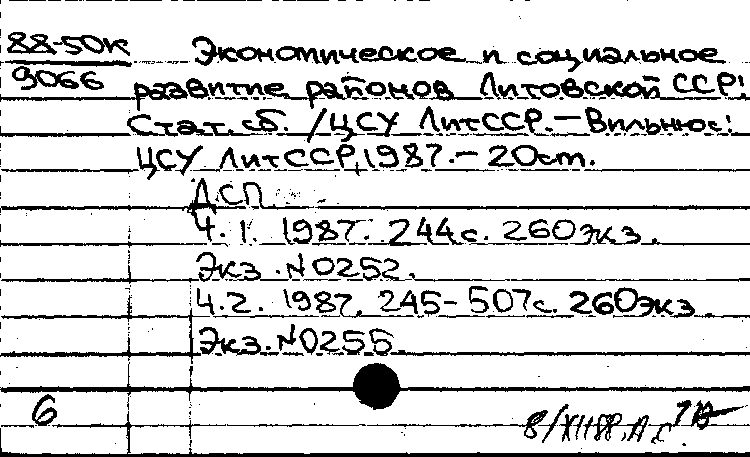 88-50к
9066
Экономическое и социальное
развитие районов Литовской ССР:
Стат. сб. / ЦСУ ЛитССР. - Вильнюс:
ЦСУ ЛитССР, 1987. - 20 ст.
ДСП
Ч. 1. 1987. 244 с. 260 экз.
Экз. N0252.
Ч. 2. 1987. 245-507с. 260 экз.
Экз. N0255.
6
8/XII 88. А. С.